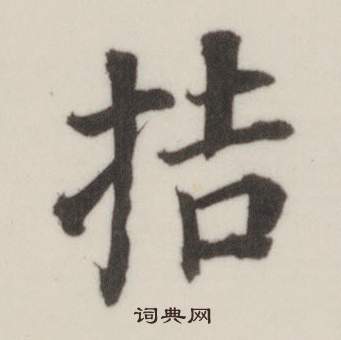 拮
词典网